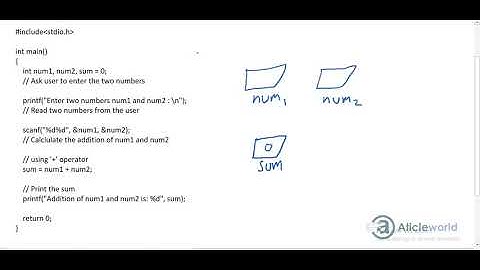 #include<stdio.h>
int main()
{
int num1, num2, sum = 0;
// Ask user to enter the two numbers
printf("Enter two numbers num1 and num2 : \n");
// Read two numbers from the user
scanf("%d%d", &num1, &num2);
// Calclulate the addition of num1 and num2
// using '+' operator
sum = num1 + num2;
// Print the sum
printf("Addition of num1 and num2 is: %d", sum);
return 0;
}
num1 num2
0
sum
a Aticleworld